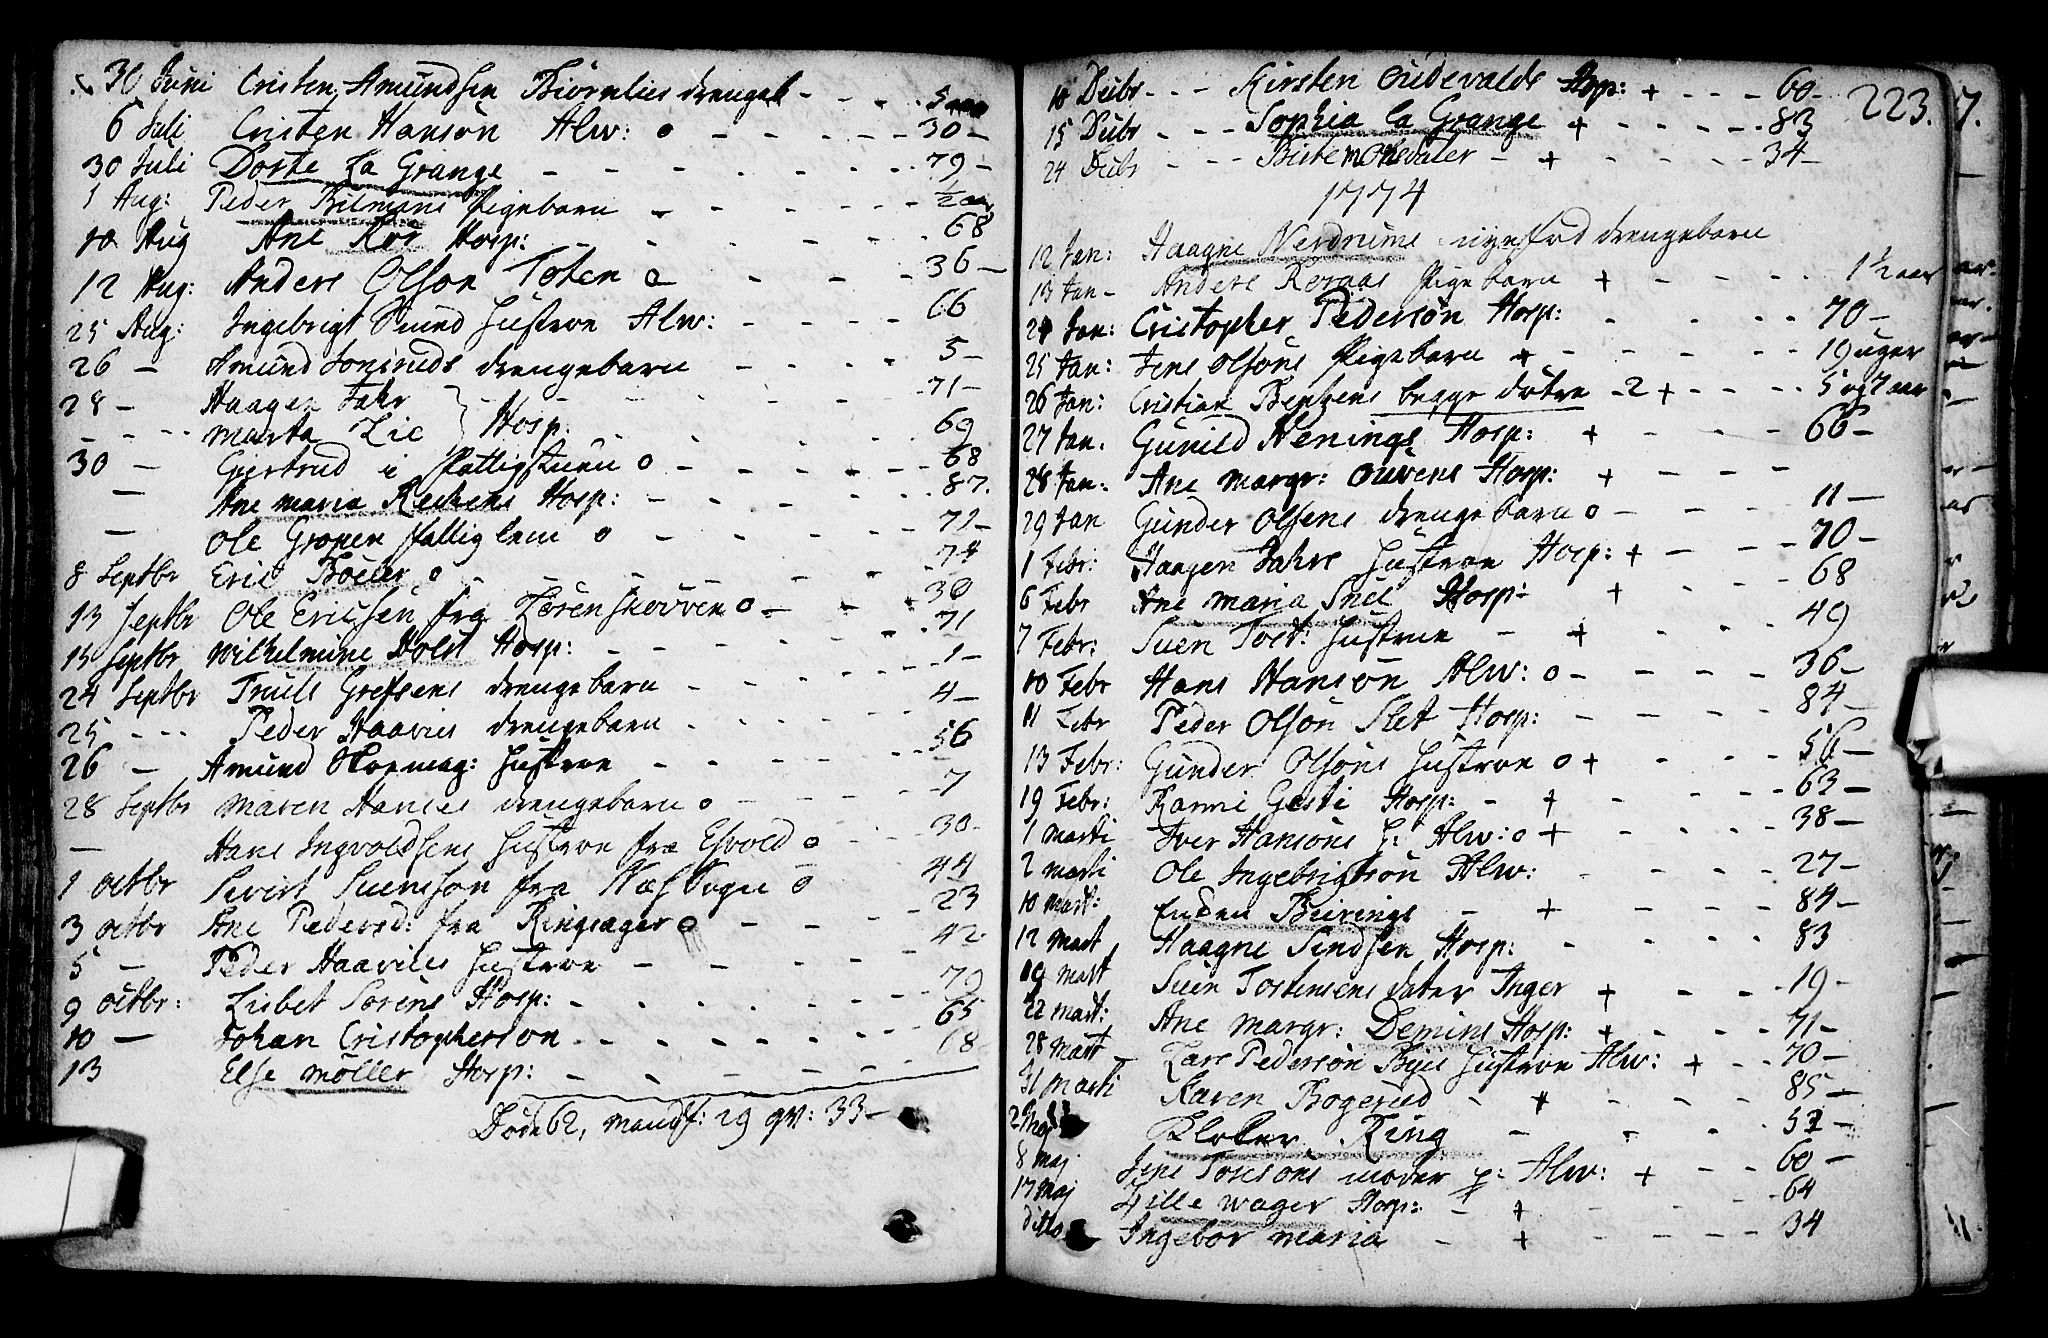 30 Juni Cristen Amundsen Biørnlies drengeb - - - 5 aar
6 Juli Cristen Hansøn Alw: o - - - 30 -
30 Juli Dorte La Grange - - - 79 -
1 Aug: Peder Bilmans Pigebarn - - - ½ aar
10 Aug Ane Roe Hosp: - - - 68
12 Aug: Anders Olson Toten o - - - 36 -
25 Aug: Ingebrigt Smed Hustroe Alw: - - - 66
26 - Amund Lonsruds drengebarn - - - 5 -
28 - Haagen Fahr - - - 71 -
- - - Marta Lie } Hosp: - - - 69
30 - Giertrud i Fattigstuen o - - - 68
- Ane Maria Hosp: - - - 87.
- Ole Gropen Fattiglem o - - - 72 -
8 Septbr Eric o - - - 74
13 Septbr Ole Ericsen fra o - - - 30
15 Septbr Wilhelmine Holst Hosp: - - - 71
24 Septbr Truls Grefsens drengebarn - - - 1 -
25 - - - Peder Haavies drengebarn - - - 4 -
26 - Amund Hustroe - - - 56
28 Septbr Maren Hanses drengebarn o - - - 7
- Hans Ingvoldsens Hustroe fra o - - - 30 -
1 octbr Sivert Suensøn fra Næs Sogn o - - - 44
3 octbr Ane Pedersd: fra Ringsager o - - - 23
5 - Peder Haavies Hustroe - - - 42
9 octbr: Lisbet Sørens Hosp: - - - 79
10 - Johan Cristophersøn - - - 65
13 Else Møller Hosp: - - - 68
Døde 62, mandk: 29 qv: 33 -
223. 7.
10 Dcbr - - - Kirsten Hosp: + - - - 60 -
15 Dcbr - - - Sophia la Grange + - - - 83
24 Dcbr - - - - + - - - 34 -
1774
12 Jan: Haagne Nerdrums nyefød drengebarn
13 Jan - Anders Pigebarn + - - - 1½ aar
24 Jan: Cristopher Pedersøn Hosp: - - - 70 -
25 Jan: Jens Olsøns Pigebarn + - - - 19 uger
26 Jan: Cristian Bentzens begge døtre - 2 + - - - 5 og 7 aar
27 Jan. Gunild Henings Hosp: + - - - 66 -
28 Jan: Ane Margr: Hosp: + - - -
29 Jan Gunder Olsens drengebarn o - - - 11 -
1 Febr: Haagen Fahrs Hustroe Hosp: + - - - 70 -
6 Febr Ane Maria Hosp: + - - - 68
7 Febr: Suen Tost: Hustroe - + - - - 49
10 Febr Hans Hansøn Alw: o - - - 36 -
11 Febr Peder Olsøn Slet Hosp: - - - 84 -
13 Febr: Gunder Olsøns Hustroe o + - - - 56 -
19 Febr: Karrni Hosp: - + - - - 63 -
1 Marti Iver Hansøns H: Alw: o + - - - 38 -
2 Marti Ole Ingebrigtsøn Alw: - - - 27 -
10 Mart: Enken - + - - - 84 -
12 Mart Haagne Hosp: - - - 83
19 Mart Suen Tostensens dater Inger + - - - 19 -
22 Mart: Ane Margr: Hosp: + - - - 71 -
28 Mart Lars Pedersøn Hustroe Alw: + - - - 70 -
31 Marti Karen Bogerud - + - - - 85 -
2 Maj Ring - - - 52 -
8 Maj Jens moder p: Alw: + - - - 60 -
17 Maj Wager Hosp: - + - - - 64
ditto Ingebor Maria - + - - - 34